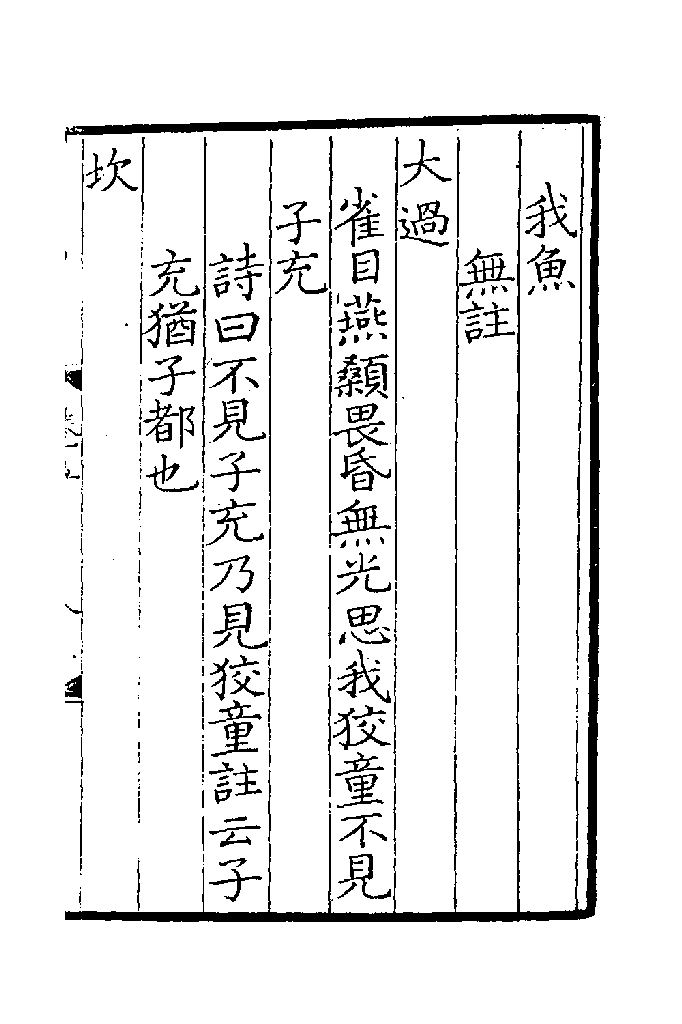 我魚
無註
大過
雀目燕顙畏昏無光思我狡童不見
子充
詩曰不見子充乃見狡童註云子
充猶子都也
坎